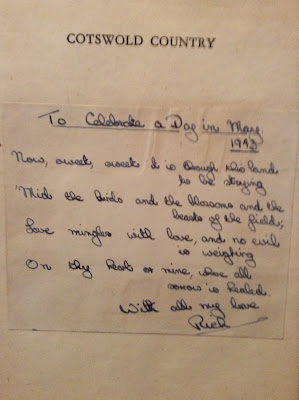 COTSWOLD COUNTRY
To Celebrate a Day in May.
1943
Now, sweet, sweet it is through this land
to be straying
'Mid the birds and the blossoms and the
beasts of the fields;
Love mingles with love, and no evil
is weighing
On thy heart or mine, where all
sorrow is healed.
With all my love
Rich